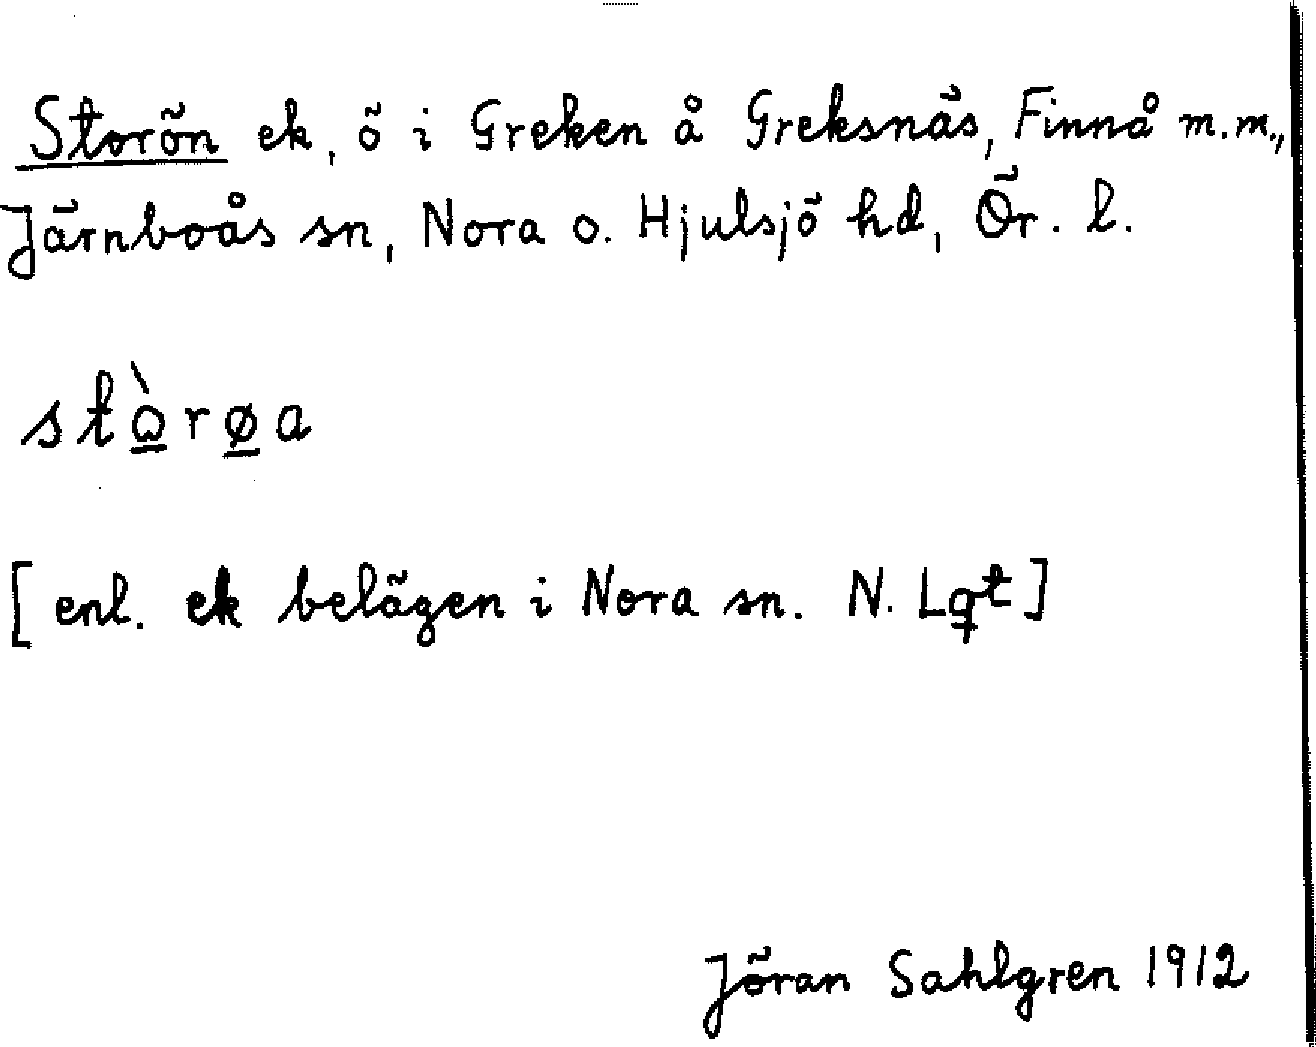 Storön ek, ö i Greken å Greksnäs, Finnå m.m.,
Järnboås sn, Nora o. Hjulsjö hd, Ör. l.
stὼ̲rø̲a
[enl. ek belägen i Nora sn. N. Lqt]
Jöran Sahlgren 1912